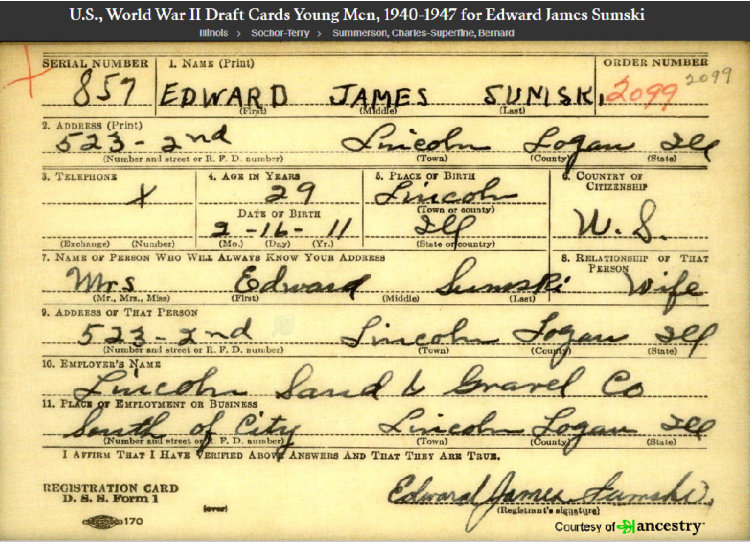 U.S., World War II Draft Cards Young Men, 1940-1947 for Edward James Sumski
Illinois > Sochor-Terry > Summerson, Charles-Superfine, Bernard
SERIAL NUMBER 1. NAME (Print) ORDER NUMBER
857 EDWARD JAMES SUMSKI 2099 2099
(First) (Middle) (Last)
2. ADDRESS (Print)
523-2nd Lincoln Logan Ill
(Number and street or R. F. D. number) (Town) (County) (State)
3. TELEPHONE 4. AGE IN YEARS 5. PLACE OF BIRTH 6. COUNTRY OF CITIZENSHIP
X 29 Lincoln
(Town or county)
DATE OF BIRTH
2-16-11 Ill U.S.
(Exchange) (Number) (Mo.) (Day) (Yr.) (State or country)
7. NAME OF PERSON WHO WILL ALWAYS KNOW YOUR ADDRESS 8. RELATIONSHIP OF THAT PERSON
Mrs Edward Sumski Wife
(Mr., Mrs., Miss) (First) (Middle) (Last)
9. ADDRESS OF THAT PERSON
523-2nd Lincoln Logan Ill
(Number and street or R. F. D. number) (Town) (County) (State)
10. EMPLOYER'S NAME
Lincoln Sand & Gravel Co
11. PLACE OF EMPLOYMENT OR BUSINESS
South of City Lincoln Logan Ill
(Number and street or R. F. D. number) (Town) (County) (State)
I AFFIRM THAT I HAVE VERIFIED ABOVE ANSWERS AND THAT THEY ARE TRUE.
REGISTRATION CARD
D. S. S. Form 1 (over) Edward James Sumski
(Registrant's signature)
170
Courtesy of ancestry